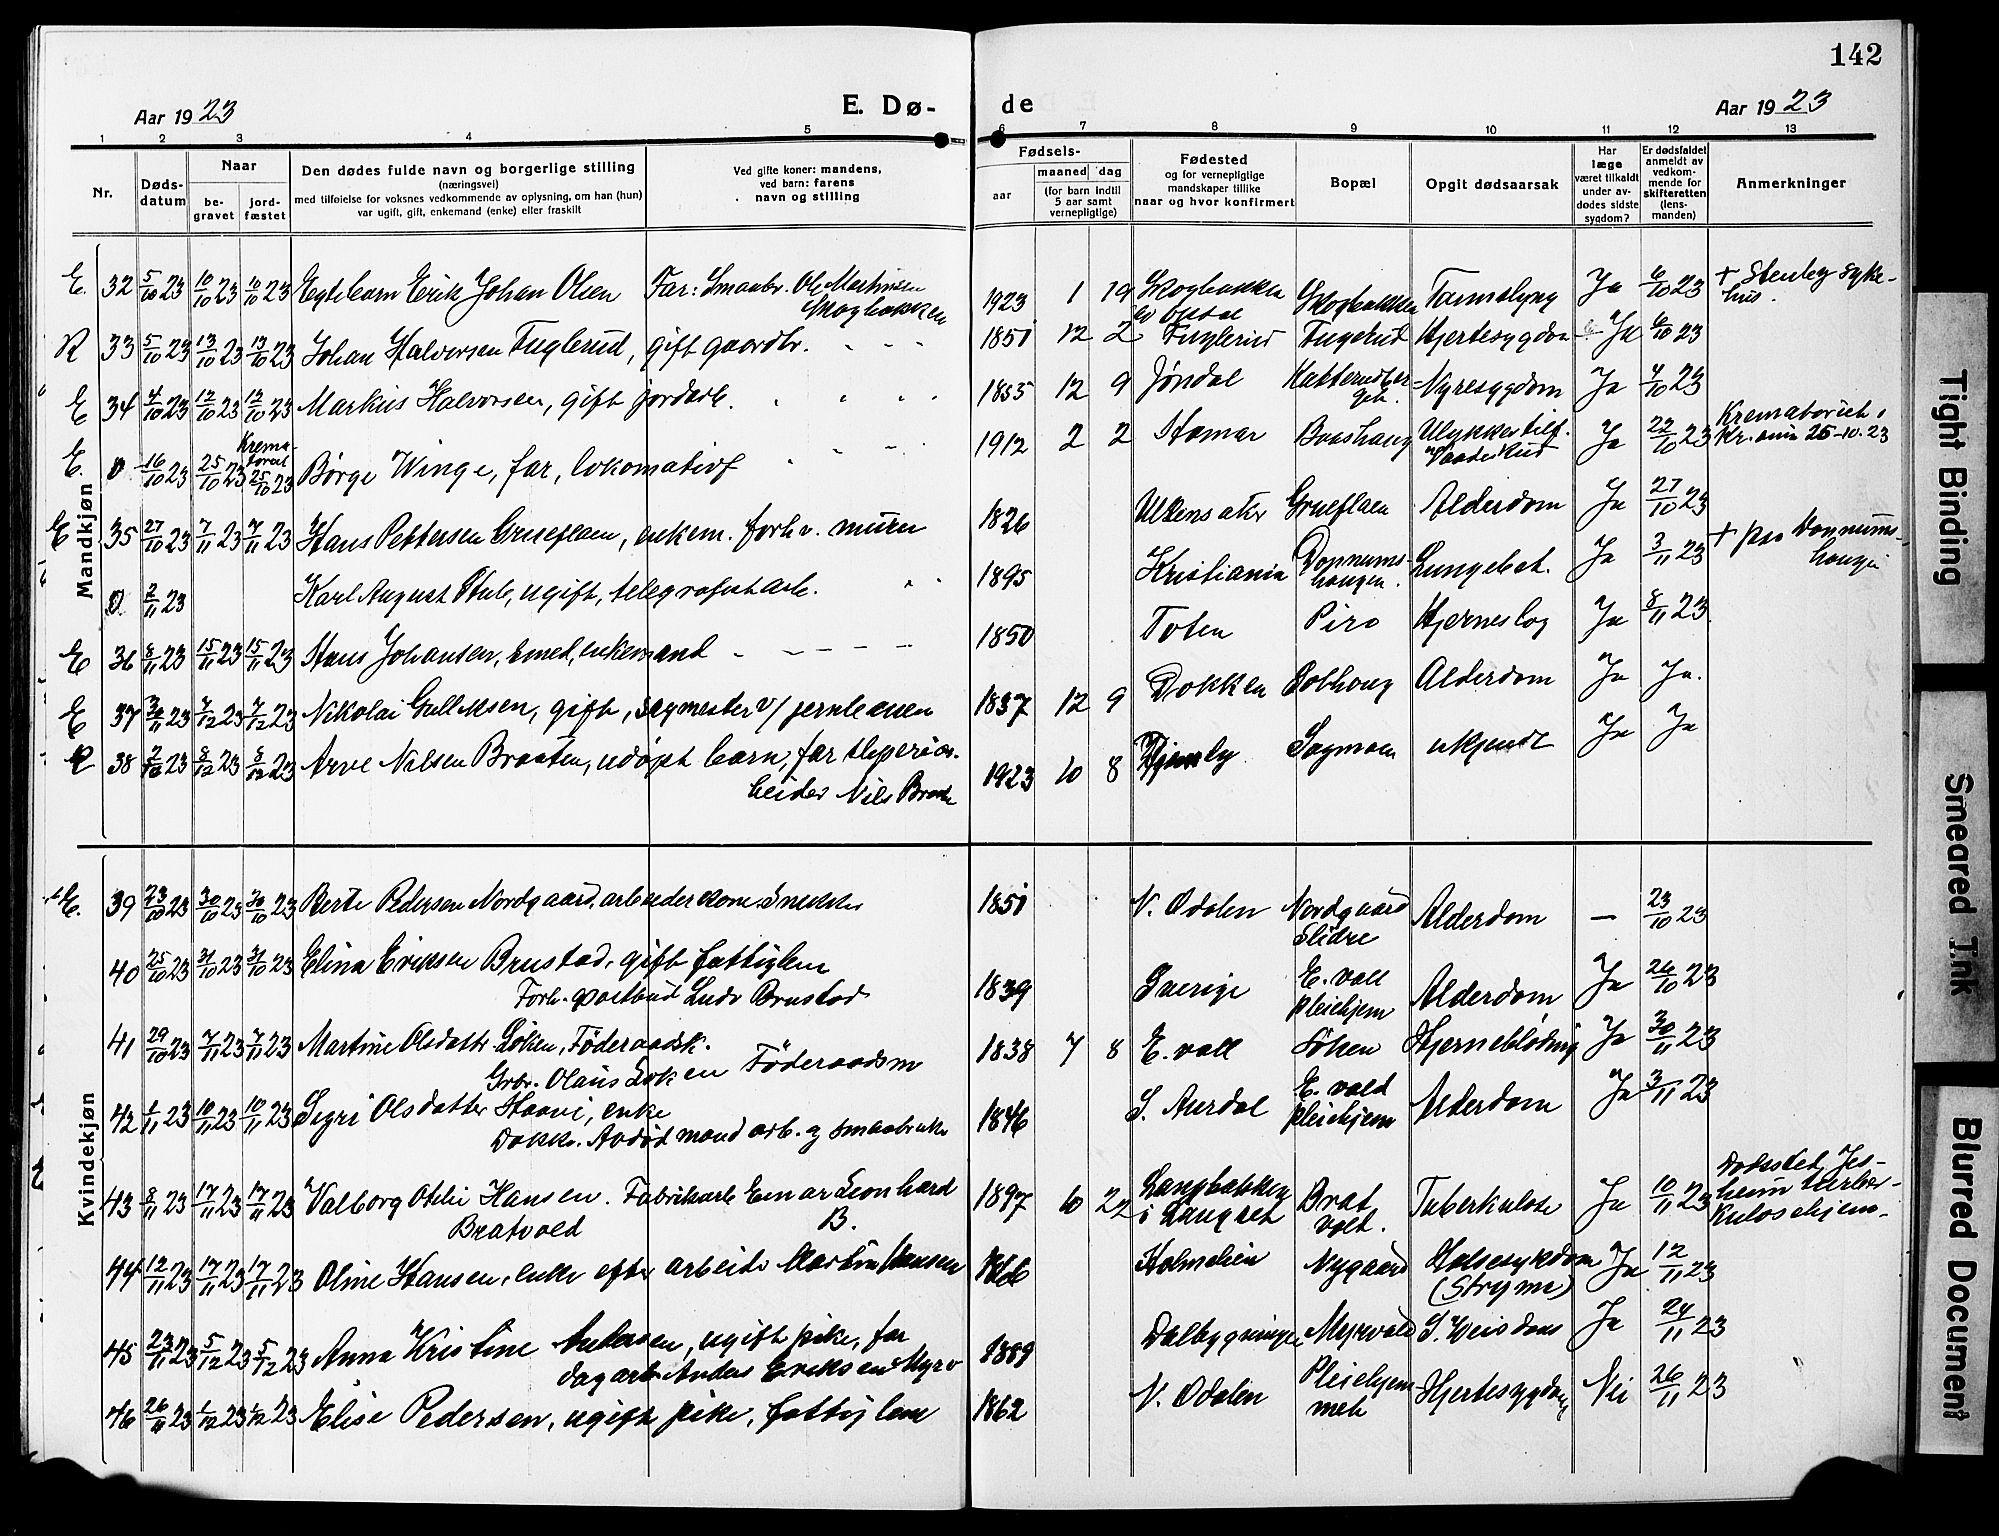 142
Aar 1923
E. Dø-
de
Aar 1923
1 2 3 4 5 6 7 8 9 10 11 12 13
Nr.
Døds-
datum
Naar
be-
gravet
jord-
fæstet
Den dødes fulde navn og borgerlige stilling
(næringsvei)
med tilføielse for voksnes vedkommende av oplysning, om han (hun)
var ugift, gift, enkemand (enke) eller fraskilt
Ved gifte koner: mandens,
ved barn: farens
navn og stilling
Fødsels-
aar
maaned dag
(for barn indtil
5 aar samt
vernepligtige)
Fødested
og for vernepligtige
mandskaper tillike
naar og hvor konfirmert
Bopæl
Opgit dødsaarsak
Har
læge
været tilkaldt
under av-
dødes sidste
sygdom?
Er dødsfaldet
anmeldt av
vedkom-
mende for
skifteretten
(lens-
manden)
Anmerkninger
Mandkjøn
E. 32 5/10 23 10/10 23 10/10 23 Egtebarn Erik Johan Olsen Far: Smaabr. Ole Martinsen
Skogbakken
1923 1 19 Skogbakken
Skogbakken Ja 6/10 23 + Stensby syke-
hus.
R 33 5/10 23 13/10 23 13/10 23 Johan Halvorsen Fuglerud, gift gaardbr.
1851 12 2 Fuglerud Fuglerud Hjertesygdom Ja 6/10 23
E 34 4/10 23 12/10 23 12/10 23 Markus Halvorsen, gift jordarb.
1855 12 9 Jøndal Nyresygdom Ja 4/10 23
E. 0 16/10 23 25/10 23 Krema-
toriet
25/10 23 Børge Winge, far, lokomotivf
1912 2 2 Hamar Ulykkestilf.
Vaadeskud Ja 22/10 23 Krematoriet i
Kr.ania 25-10-23
E 35 27/10 23 7/11 23 7/11 23 Hans Pettersen Grueflaen, enkem. forhv. murer
1826 Ullensaker Grueflaen Alderdom Ja 27/10 23
0 2/11 23 Karl August Stub, ugift, telegrafarb.
1895 Kristiania Donnums-
haugen. Lungebet. Ja 3/11 23 + paa Donnums-
haugen
E 36 8/11 23 15/11 23 15/11 23 Hans Johansen, smed, enkemand
1850 Toten Piro Hjerneslag Ja 8/11 23
E 37 30/11 23 7/12 23 7/12 23 Nikolai Gulleksen, gift, sagmester v/ jernbanen
1837 12 9 Dokken Solhaug Alderdom Ja Ja.
R 38 2/12 23 8/12 23 8/12 23 Arve Nilsen Braaten, udøpt barn, far sliperiar-
beider Nils Braaten
1923 10 8 Sagmoen ukjendt Ja Ja
Kvindekjøn
E. 39 23/10 23 30/10 23 30/10 23 Berte Pedersen Nordgaard, arbeiderkone
1851 N. Odalen Nordgaard
Slidre Alderdom — 23/10 23
40 25/10 23 31/10 23 31/10 23 Elina Eriksen Brustad, gift fattiglem
Forh. postbud Ludv Brustad
1839 Sverige E. voll
Pleiehjem Alderdom Ja 26/10 23
41 29/10 23 7/11 23 7/11 23 Martine Olsdatter Løken, Föderaadsk.
Grbr. Olaus Løken Föderaadsm
1838 7 8 E. voll Løken Hjerneblödning Ja 30/11 23
42 1/11 23 10/11 23 10/11 23 Sigri Olsdatter Haavi, enke
Dokk. Avdød mand arb. og smaabruker
1846 S. Aurdal E. vold
Pleiehjem Alderdom Ja 3/11 23
43 8/11 23 17/11 23 17/11 23 Valborg Otelie Hansen. Fabrikarb Einar Leonhard
Bratvold B.
1897 10 22 Langbakken
i Langset Brat
vold. Tuberkulose Ja 10/11 23 Dødssted Jes-
heim tuber-
kulosehjem.
44 12/11 23 17/11 23 17/11 23 Oline Hansen, enke efter arbeider Martin Hansen
Holmelien Nygaard Halsesykdom
(Struma) Ja 12/11 23
45 23/11 23 5/12 23 5/12 23 Anna Kristine Andersen, ugift pike, far
dagarb. Anders Eriksen Myrv
1889 Dalbygningen Myrvold Ja 24/11 23
46 26/11 23 1/12 23 1/12 23 Elise Pedersen, ugift pike, fattiglem
1862 N. Odalen Pleiehjem
met Hjertesygdom Nei 26/11 23
Tight Binding
Smeared Ink
Blurred Document